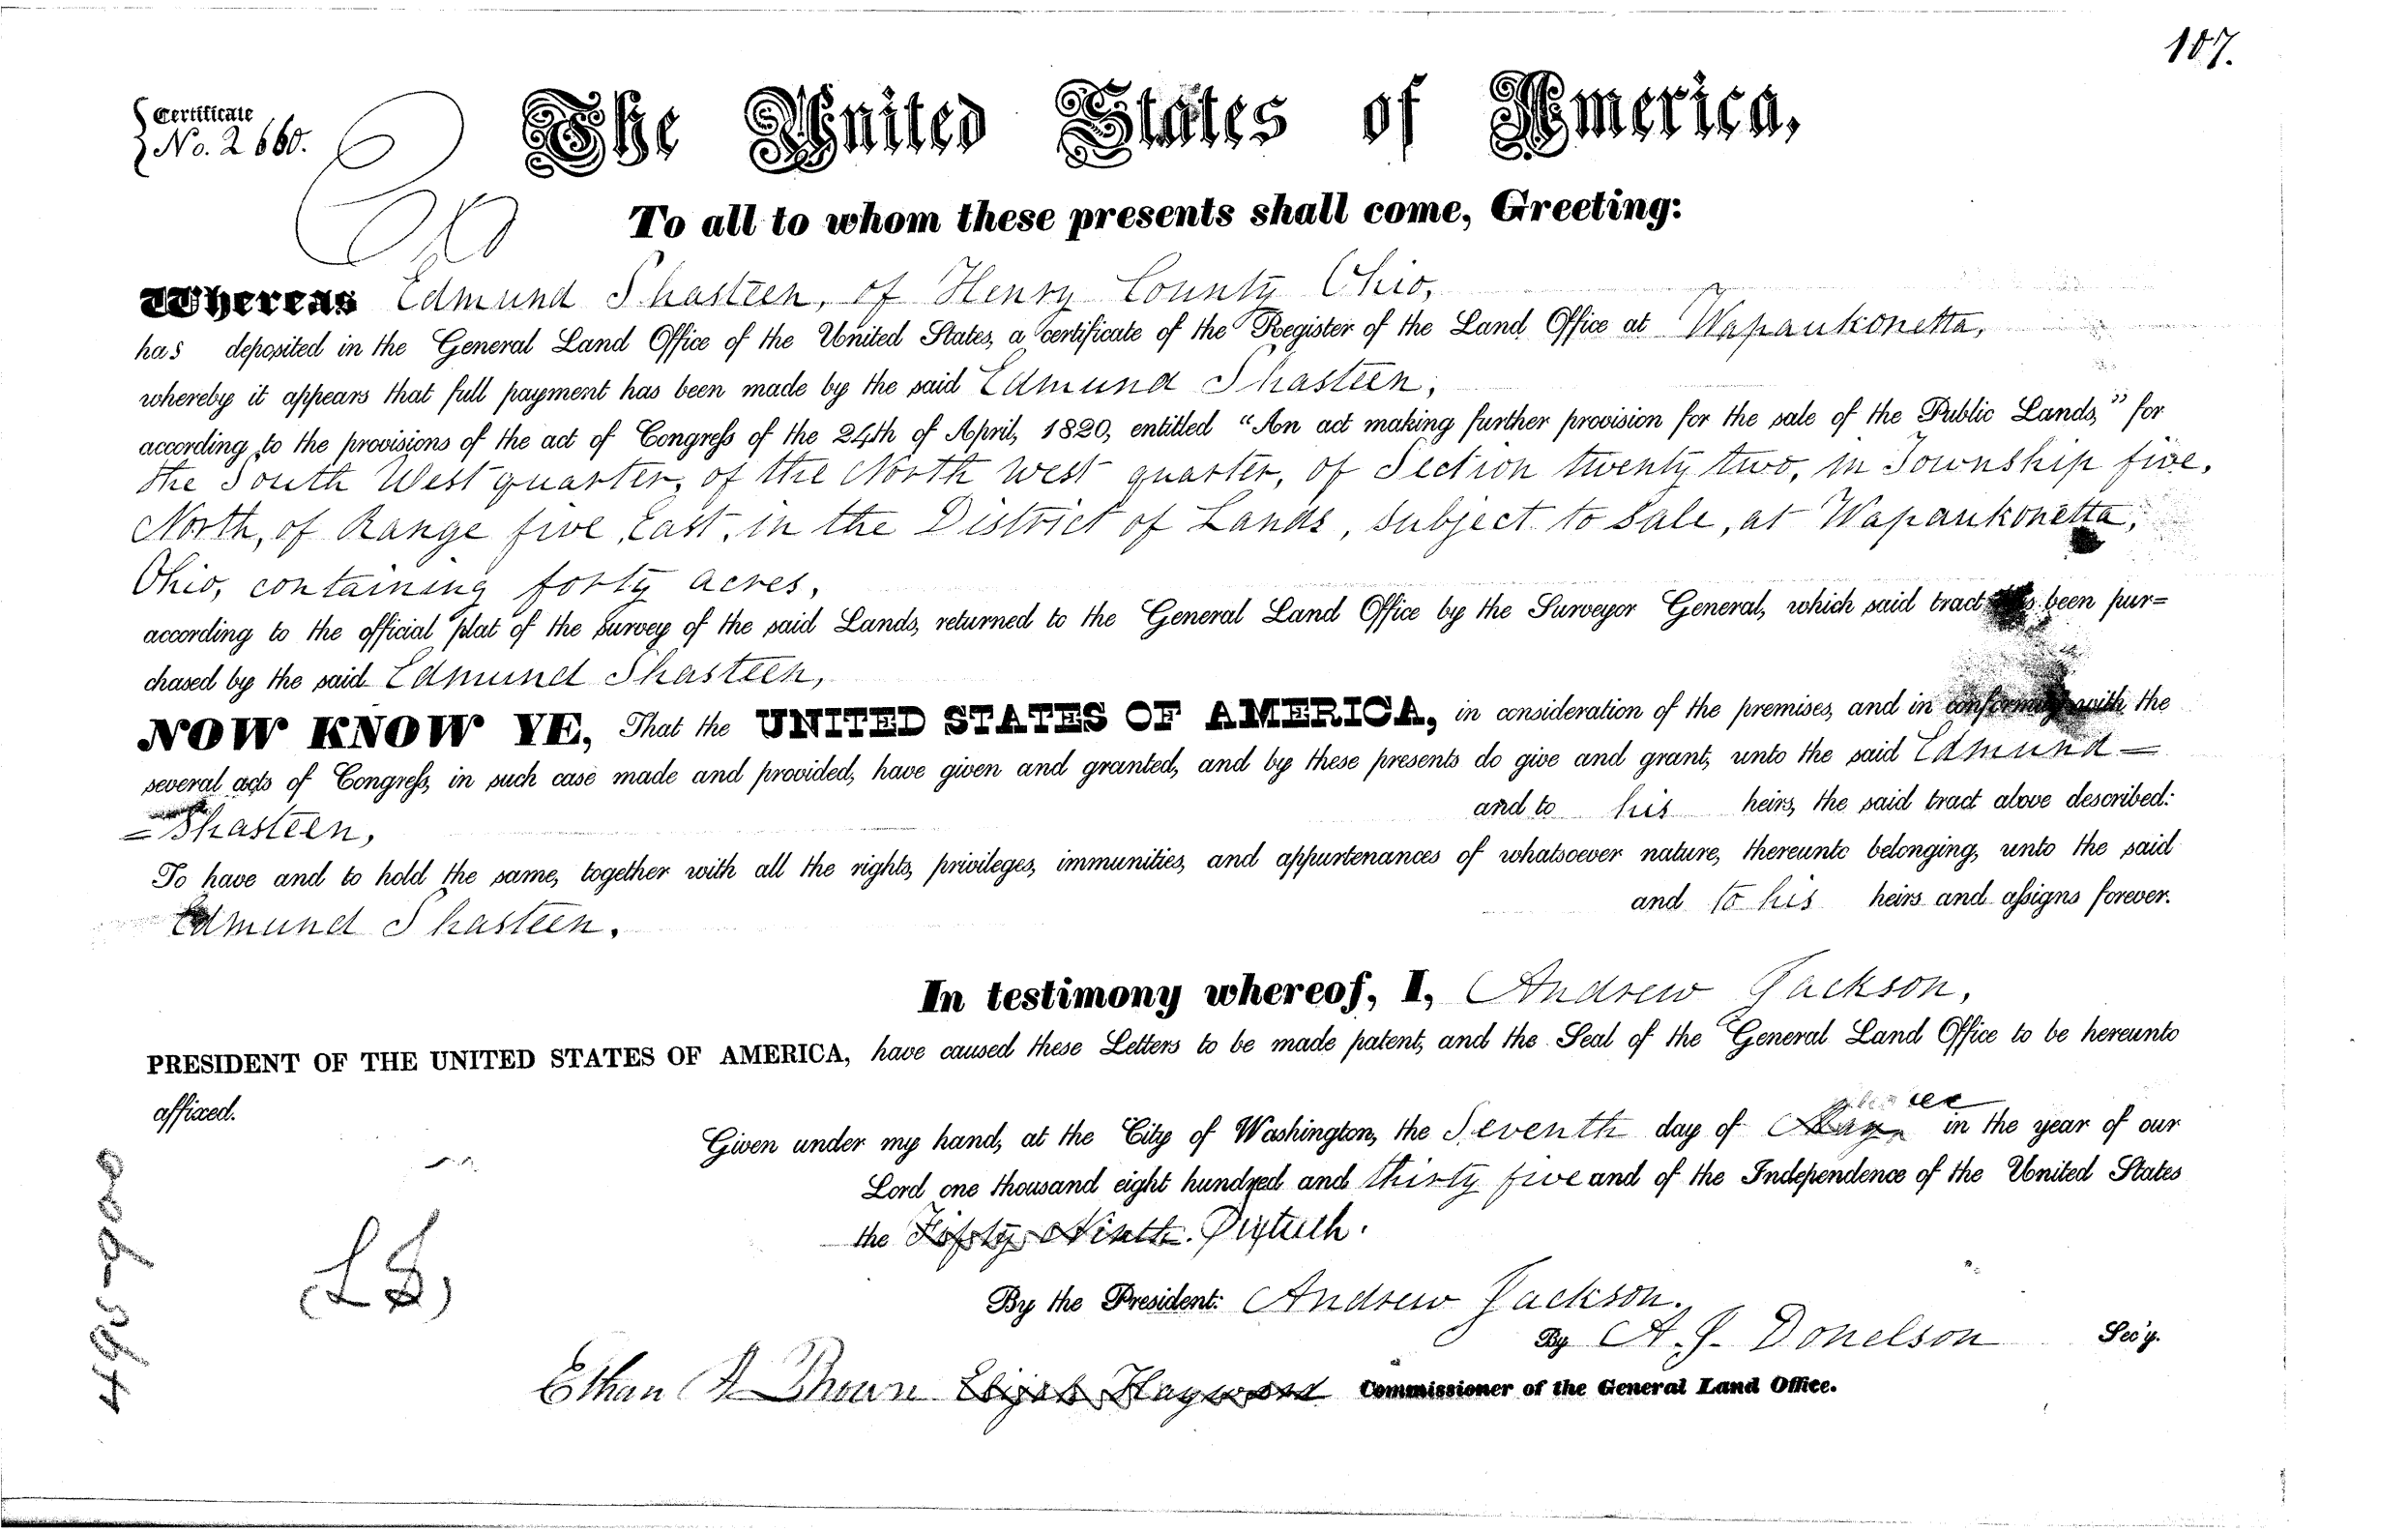 107.
Certificate
No. 2660.
The United States of America,
To all to whom these presents shall come, Greeting:
Whereas Edmund Shasteen, of Henry County Ohio,
has deposited in the General Land Office of the United States, a certificate of the Register of the Land Office at Wapaukonetta,
whereby it appears that full payment has been made by the said Edmund Shasteen,
according to the provisions of the act of Congress of the 24th of April, 1820, entitled "An act making further provision for the sale of the Public Lands," for
the South West quarter, of the North west quarter, of Section twenty two, in Township five,
North, of Range five, East, in the District of Lands, subject to Sale, at Wapaukonetta,
Ohio, containing forty acres,
according to the official plat of the survey of the said Lands, returned to the General Land Office by the Surveyor General, which said tract has been pur=
chased by the said Edmund Shasteen,
NOW KNOW YE, That the UNITED STATES OF AMERICA, in consideration of the premises, and in conformity with the
several acts of Congress, in such case made and provided, have given and granted, and by these presents do give and grant, unto the said Edmund =
= Shasteen, and to his heirs, the said tract above described:
To have and to hold the same, together with all the rights, privileges, immunities, and appurtenances of whatsoever nature, thereunto belonging, unto the said
Edmund Shasteen. and to his heirs and assigns forever.
In testimony whereof, I, Andrew Jackson,
PRESIDENT OF THE UNITED STATES OF AMERICA, have caused these Letters to be made patent, and the Seal of the General Land Office to be hereunto
affixed.
Given under my hand, at the City of Washington, the Seventh day of May in the year of our
Lord one thousand eight hundred and thirty five and of the Independence of the United States
the Fifty Ninth. Sixtieth.
(LS)
By the President: Andrew Jackson.
By A. J. Donelson Sec'y.
Ethan A Brown Elijah Hayward Commissioner of the General Land Office.